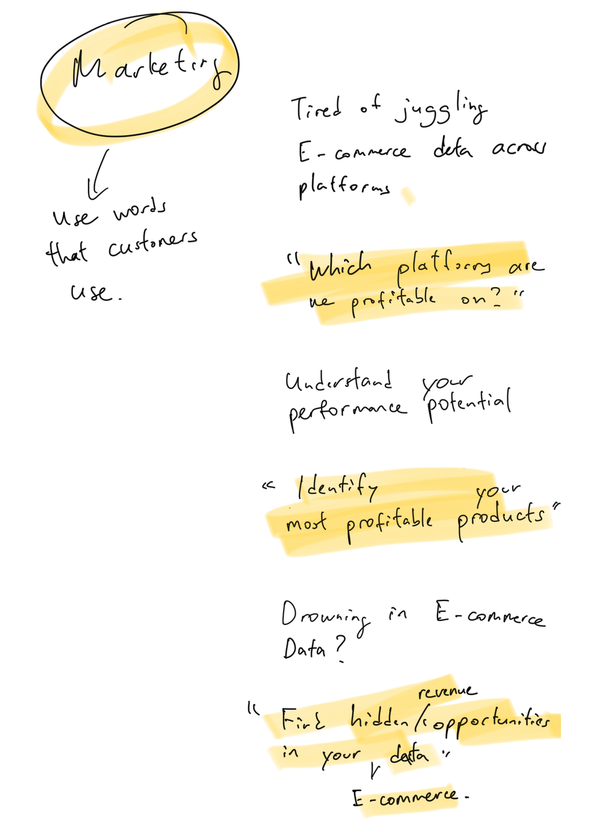 Marketing
use words
that customers
use.
Tired of juggling
E-commerce data across
platforms
"Which platforms are
we profitable on?"
Understand your
performance potential
"Identify your
most profitable products"
Drowning in E-commerce
Data?
revenue
"Find hidden/opportunities
in your data"
E-commerce.